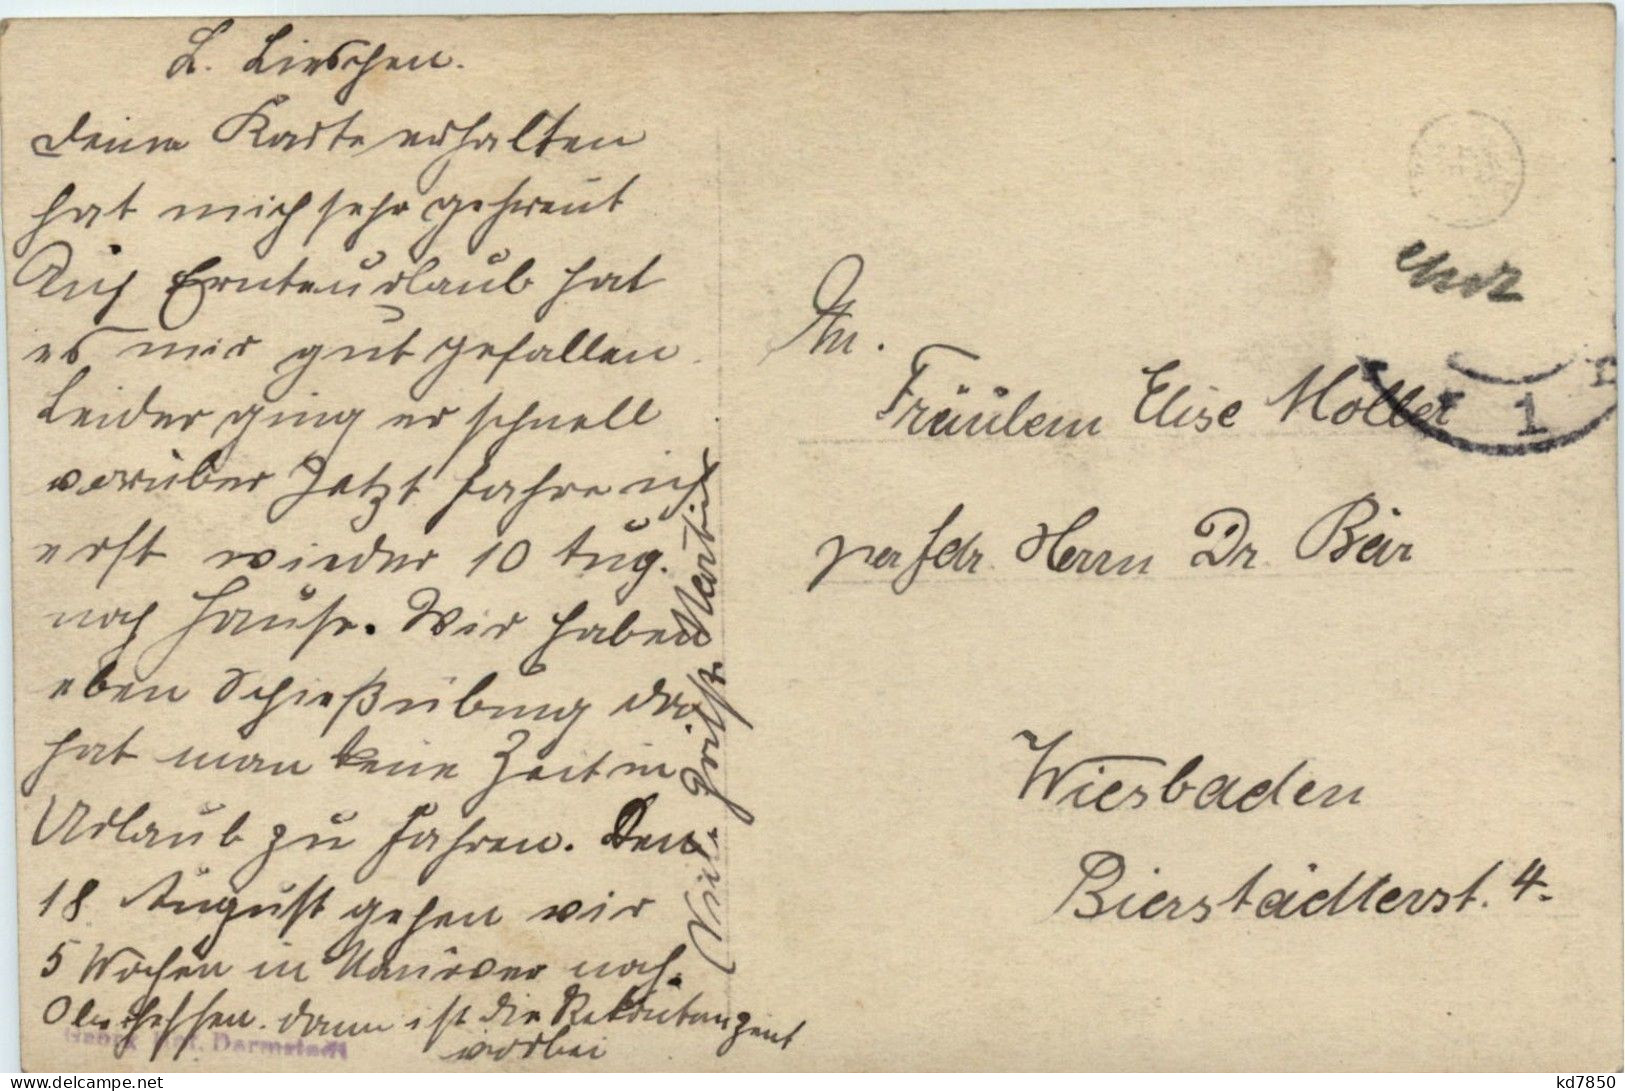 L. Lieschen.
Deine Karte erhalten
hat mich sehr gefreut
Auf Ernteurlaub hat
es mir gut gefallen
Leider ging er schnell
vorüber Jetzt fahre ich
erst wieder 10 Aug.
nach Hause. Wir haben
eben Schießübung da
hat man keine Zeit in
Urlaub zu fahren. Den
18 August gehen wir
5 Wochen in Manöver nach
Oberhessen. dann ist die Rekrutenzeit
vorbei
Viele Grüße Martin
An.
Fräulein Elise Moller
per Adr. Herrn Dr. Beir
Wiesbaden
Bierstädterst. 4.
1
Darmstadt
kd7850